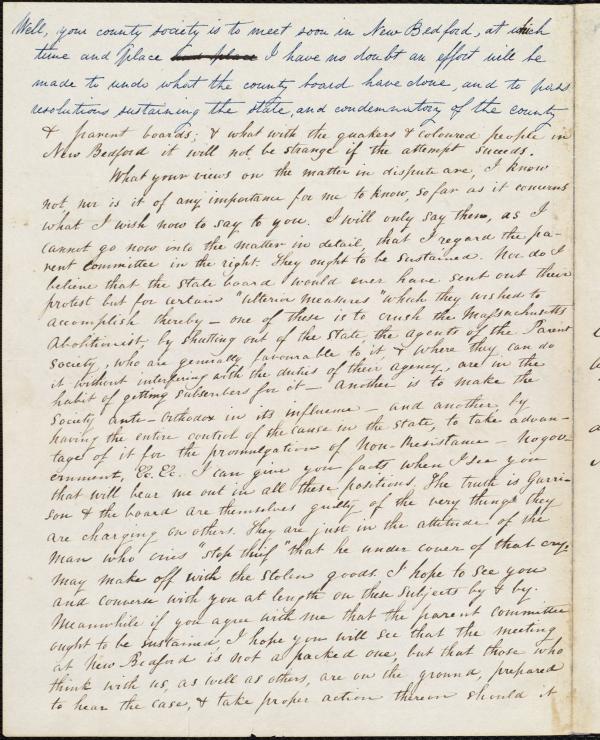 Well, your county society is to meet soon in New Bedford, at which
time and place and place I have no doubt an effort will be
made to undo what the county board have done, and to pass
resolutions sustaining the state, and condemnatory of the county
& parent boards; & what with the quakers & coloured people in
New Bedford it will not be strange if the attempt suceeds.
What your views on the matter in dispute are, I know
not, nor is it of any importance for me to know, so far as it concerns
what I wish now to say to you. I will only say then, as I
cannot go now into the matter in detail, that I regard the pa-
rent committee in the right. They ought to be sustained. Nor do I
believe that the State board would ever have sent out their
protest but for certain "ulterior measures" which they wished to
accomplish thereby — one of these is to crush the Massachusetts
Abolitionist, by shutting out of the State, the agents of the Parent
Society, who are generally favourable to it, & where they can do
it without interfering with the duties of their agency, are in the
habit of getting subscribers for it — Another is to make the
Society anti-Orthodox in its influence — and another, by
having the entire control of the cause in the State, to take advan-
tage of it for the promulgation of Non-Resistance — No gov-
ernment, &c. &c. I can give you facts when I see you
that will bear me out in all these positions. The truth is Garri-
son & the board are themselves guilty of the very things they
are charging on others. They are just in the attitude of the
man who cries "stop thief" that he under cover of that cry,
may make off with the stolen goods. I hope to see you
and converse with you at length on these subjects by & by.
Meanwhile if you agree with me that the parent committee
ought to be sustained, I hope you will see that the meeting
at New Bedford is not a packed one, but that those who
think with us, as well as others, are on the ground, prepared
to hear the case, & take proper action thereon should it